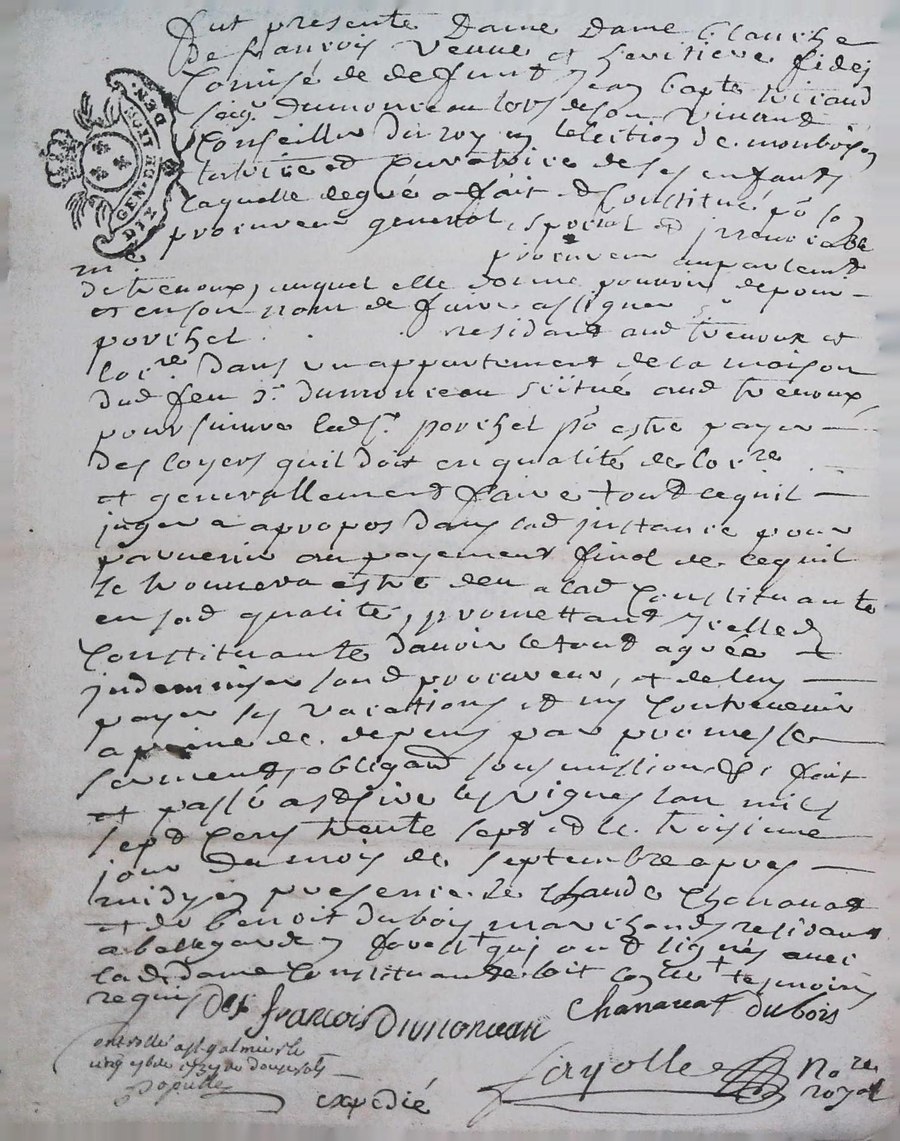 fut presente Dame Dame Blanche
De françois veuve et heritiere fidei
Comise de deffunt jean bapte ricaud
Dumonceau lors de son vivant
Conseiller du roy en lelection de monbrison
tutrice et curatrice de ses enfants
laquelle de gré a fait et Constitue po son
procureur general, special et jrreuocable
me. procureur au parlement
de treuoux, auquel elle donne pouuoir de pour
et en son nom de faire assigner sr
porchet residant aud treuoux et
locre. dans un appartement de la maison
dud feu sr dumonceau scitué aud treuoux
poursuiure led sr porchet po estre payer
des loyers quil doit en qualité de locre
et generallement faire tout ce quil
jugera apropos dans lad jnstance pour
paruenir au payement final de ce quil
se trouuera estre deu a lad Constituante
en sad qualité, promettant jcelled
Constituante dauoir le tout agreé et
jndemniser sond procureur, et de luy
payer ses vacations et ny Contreuenir
a peine de depens par promesse
serment, obligaon soumission &c fait
et passé a st Sixte les vignes lan mil
sept Cens trente sept et le troisieme
jour du mois de septembre apres
midy en presence de Claude Chanauat
et de benoit dubois marchands residants
a bellegarde en forest qui ont signés auec
lad dame Constituante soit comme tesmoins
requis Def francois Dumonceau Chanauat dubois
Controllé a st galmier le
cinq 7bre 1737 Reçu douze sols
expedié Fayolle Nore
royal
GEN. DE
DIX
DEN.